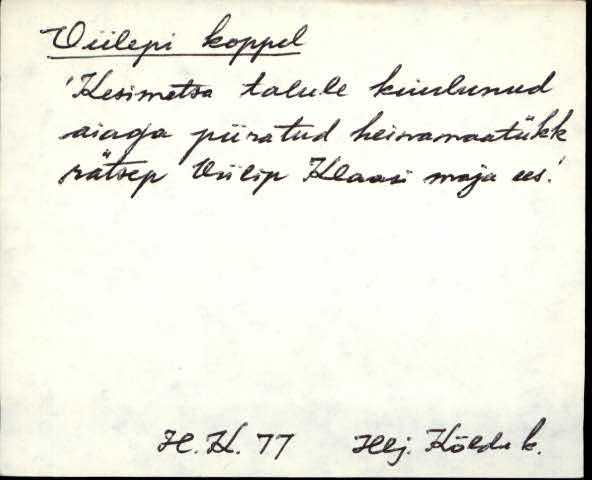 Viilepi koppel
'Kesimetsa talule kuulunud
aiaga piiratud heinamaatükk
rätsep Viilip Klaasi maja ees.'
H. K. 77 Hlj. Kõldu k.